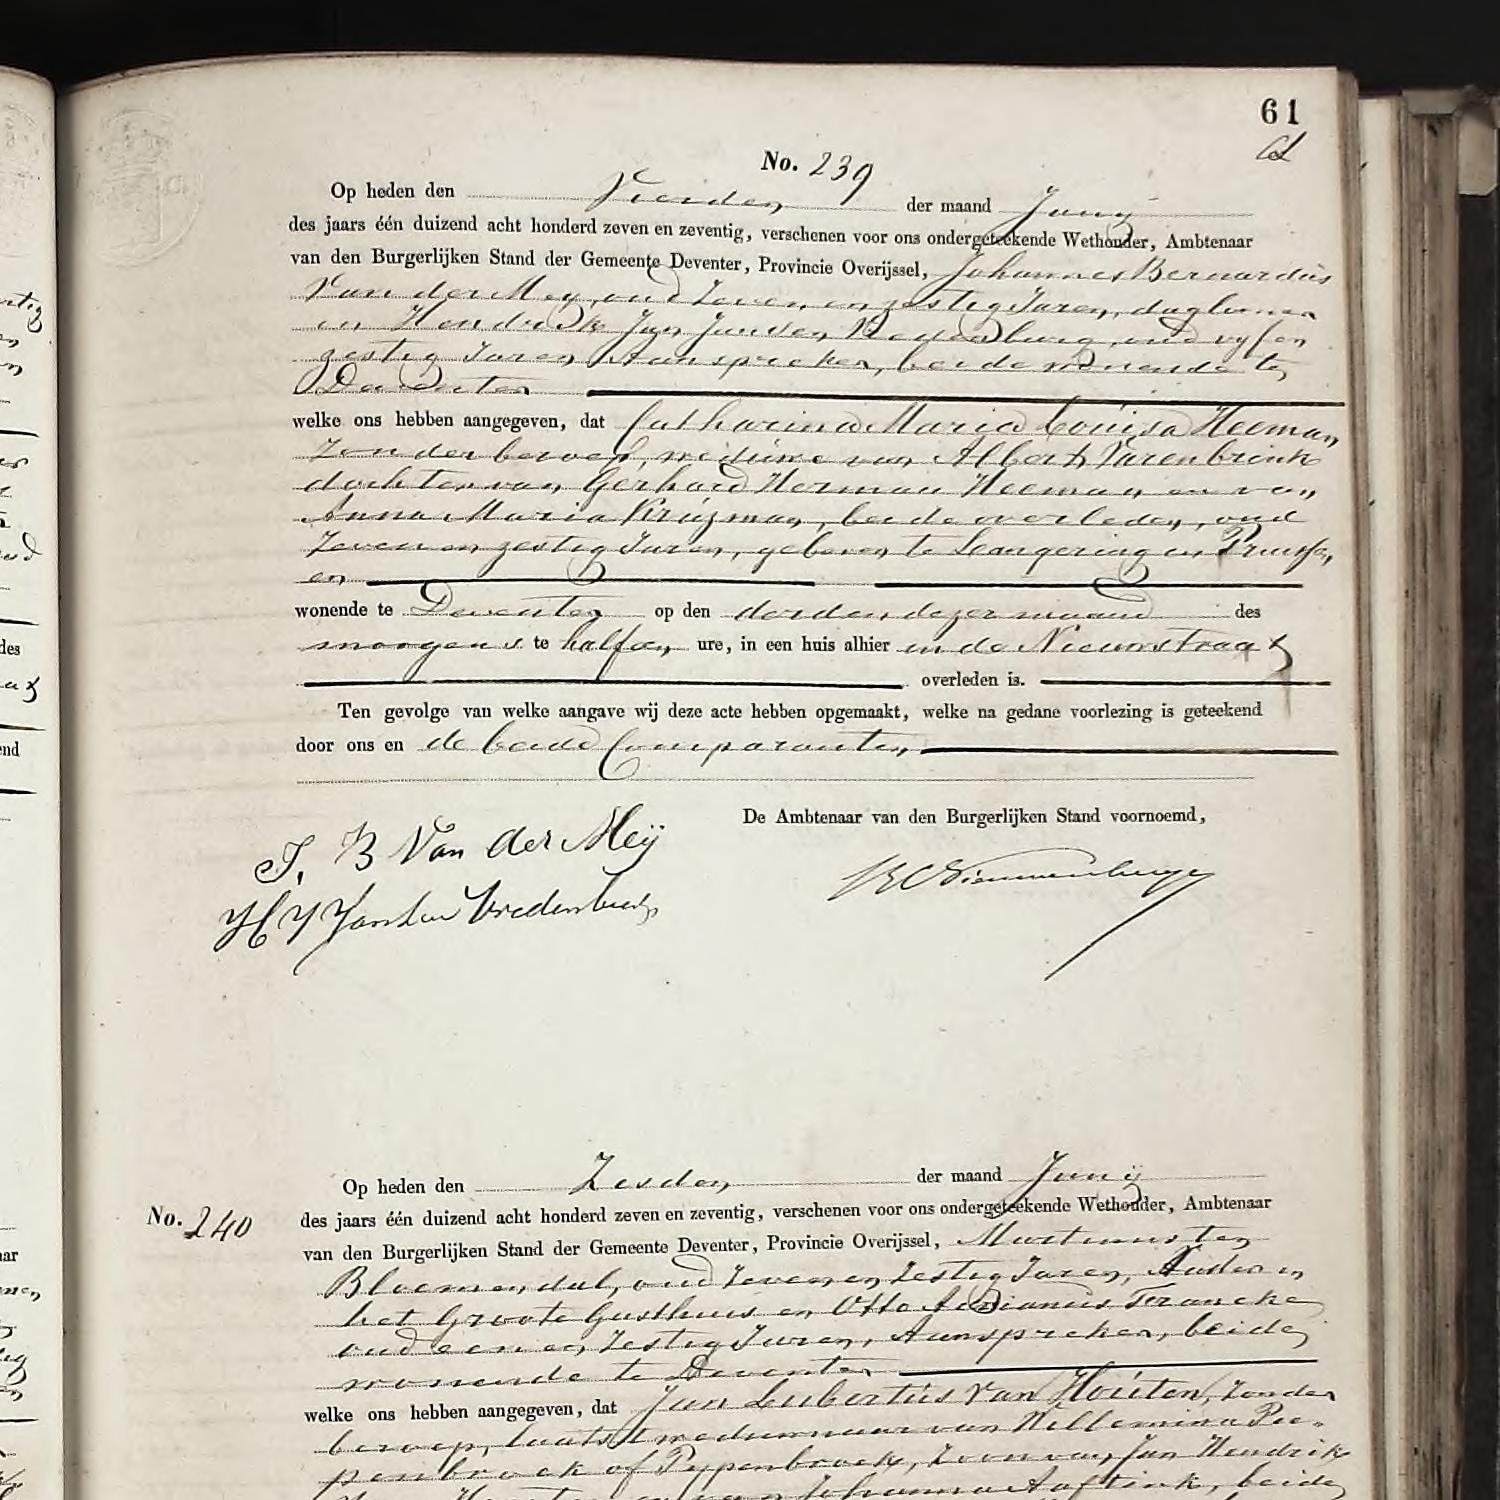 61
No. 239
Op heden den Vierden der maand Junij
des jaars één duizend acht honderd zeven en zeventig, verschenen voor ons ondergeteekende Wethouder, Ambtenaar
van den Burgerlijken Stand der Gemeente Deventer, Provincie Overijssel, Johannes Bernardus
Van der Mey, oud Zeven en zestig Jaren, daglooner
en Hendrik Jan Jansen Vredenburg, oud vyf en
zestig Jaren Aanspreker, beide wonende te
Deventer
welke ons hebben aangegeven, dat Catharina Maria Louisa Heeman
Zonder beroep, weduwe van Albert Varenbrink
dochter van Gerhard Herman Heeman en van
Anna Maria Kruzman, beide overleden, oud
Zeven en zestig Jaren, geboren te Langering in Pruisse,
en
wonende te Deventer op den derden dezer maand des
morgens te half ure, in een huis alhier in de Nieuwstraat
overleden is.
Ten gevolge van welke aangave wij deze acte hebben opgemaakt, welke na gedane voorlezing is geteekend
door ons en de beide Comparanten
De Ambtenaar van den Burgerlijken Stand voornoemd,
J. B Van der Meij
H J Jansen Vredenburg
Op heden den Zesden der maand Junij
No. 240
des jaars één duizend acht honderd zeven en zeventig, verschenen voor ons ondergeteekende Wethouder, Ambtenaar
van den Burgerlijken Stand der Gemeente Deventer, Provincie Overijssel, Martinus ten
Bloemendal, oud Zeven en Zestig Jaren, Vader in
het Groote Gasthuis en Otto Adrianus Francke
oud een en Zestig Jaren, Aanspreker, beide
wonende te Deventer
welke ons hebben aangegeven, dat Jan Lubertus Van Houten, Zonder
beroep, laatst weduwnaar van Willemina Pie-
penbroek of Pypenbroek, Zoon van Jan Hendrik
Van Houten en van Johanna Aaftink, beide